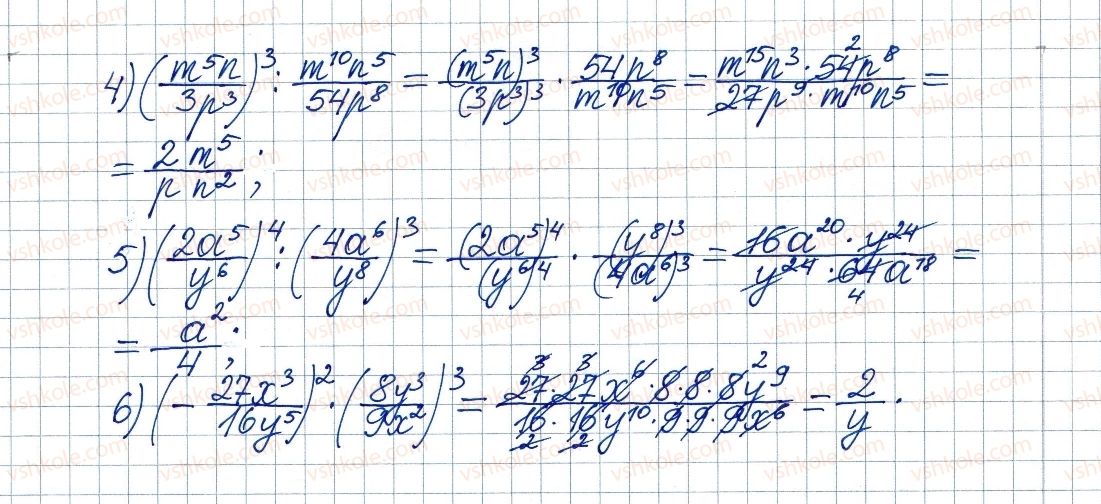 4) (m⁵n / 3p³)³ : m¹⁰n⁵ / 54p⁸ = (m⁵n)³ / (3p³)³ · 54p⁸ / m¹⁰n⁵ = m¹⁵n³ · 54p⁸ 2 / 27p⁹ · m¹⁰n⁵ =
= 2m⁵ / p n² ;
5) (2a⁵ / y⁶)⁴ : (4a⁶ / y⁸)³ = (2a⁵)⁴ / (y⁶)⁴ · (y⁸)³ / (4a⁶)³ = 16a²⁰ · y²⁴ / y²⁴ · 64a¹⁸ 4 =
= a² / 4 ;
6) (- 27x³ / 16y⁵)² · (8y³ / 9x²)³ = 3 3 2 27 · 27x⁶ · 8 · 8 · 8y⁹ / 16 · 16y¹⁰ · 9 · 9 · 9x⁶ 2 2 = 2 / y .
vshkole.com